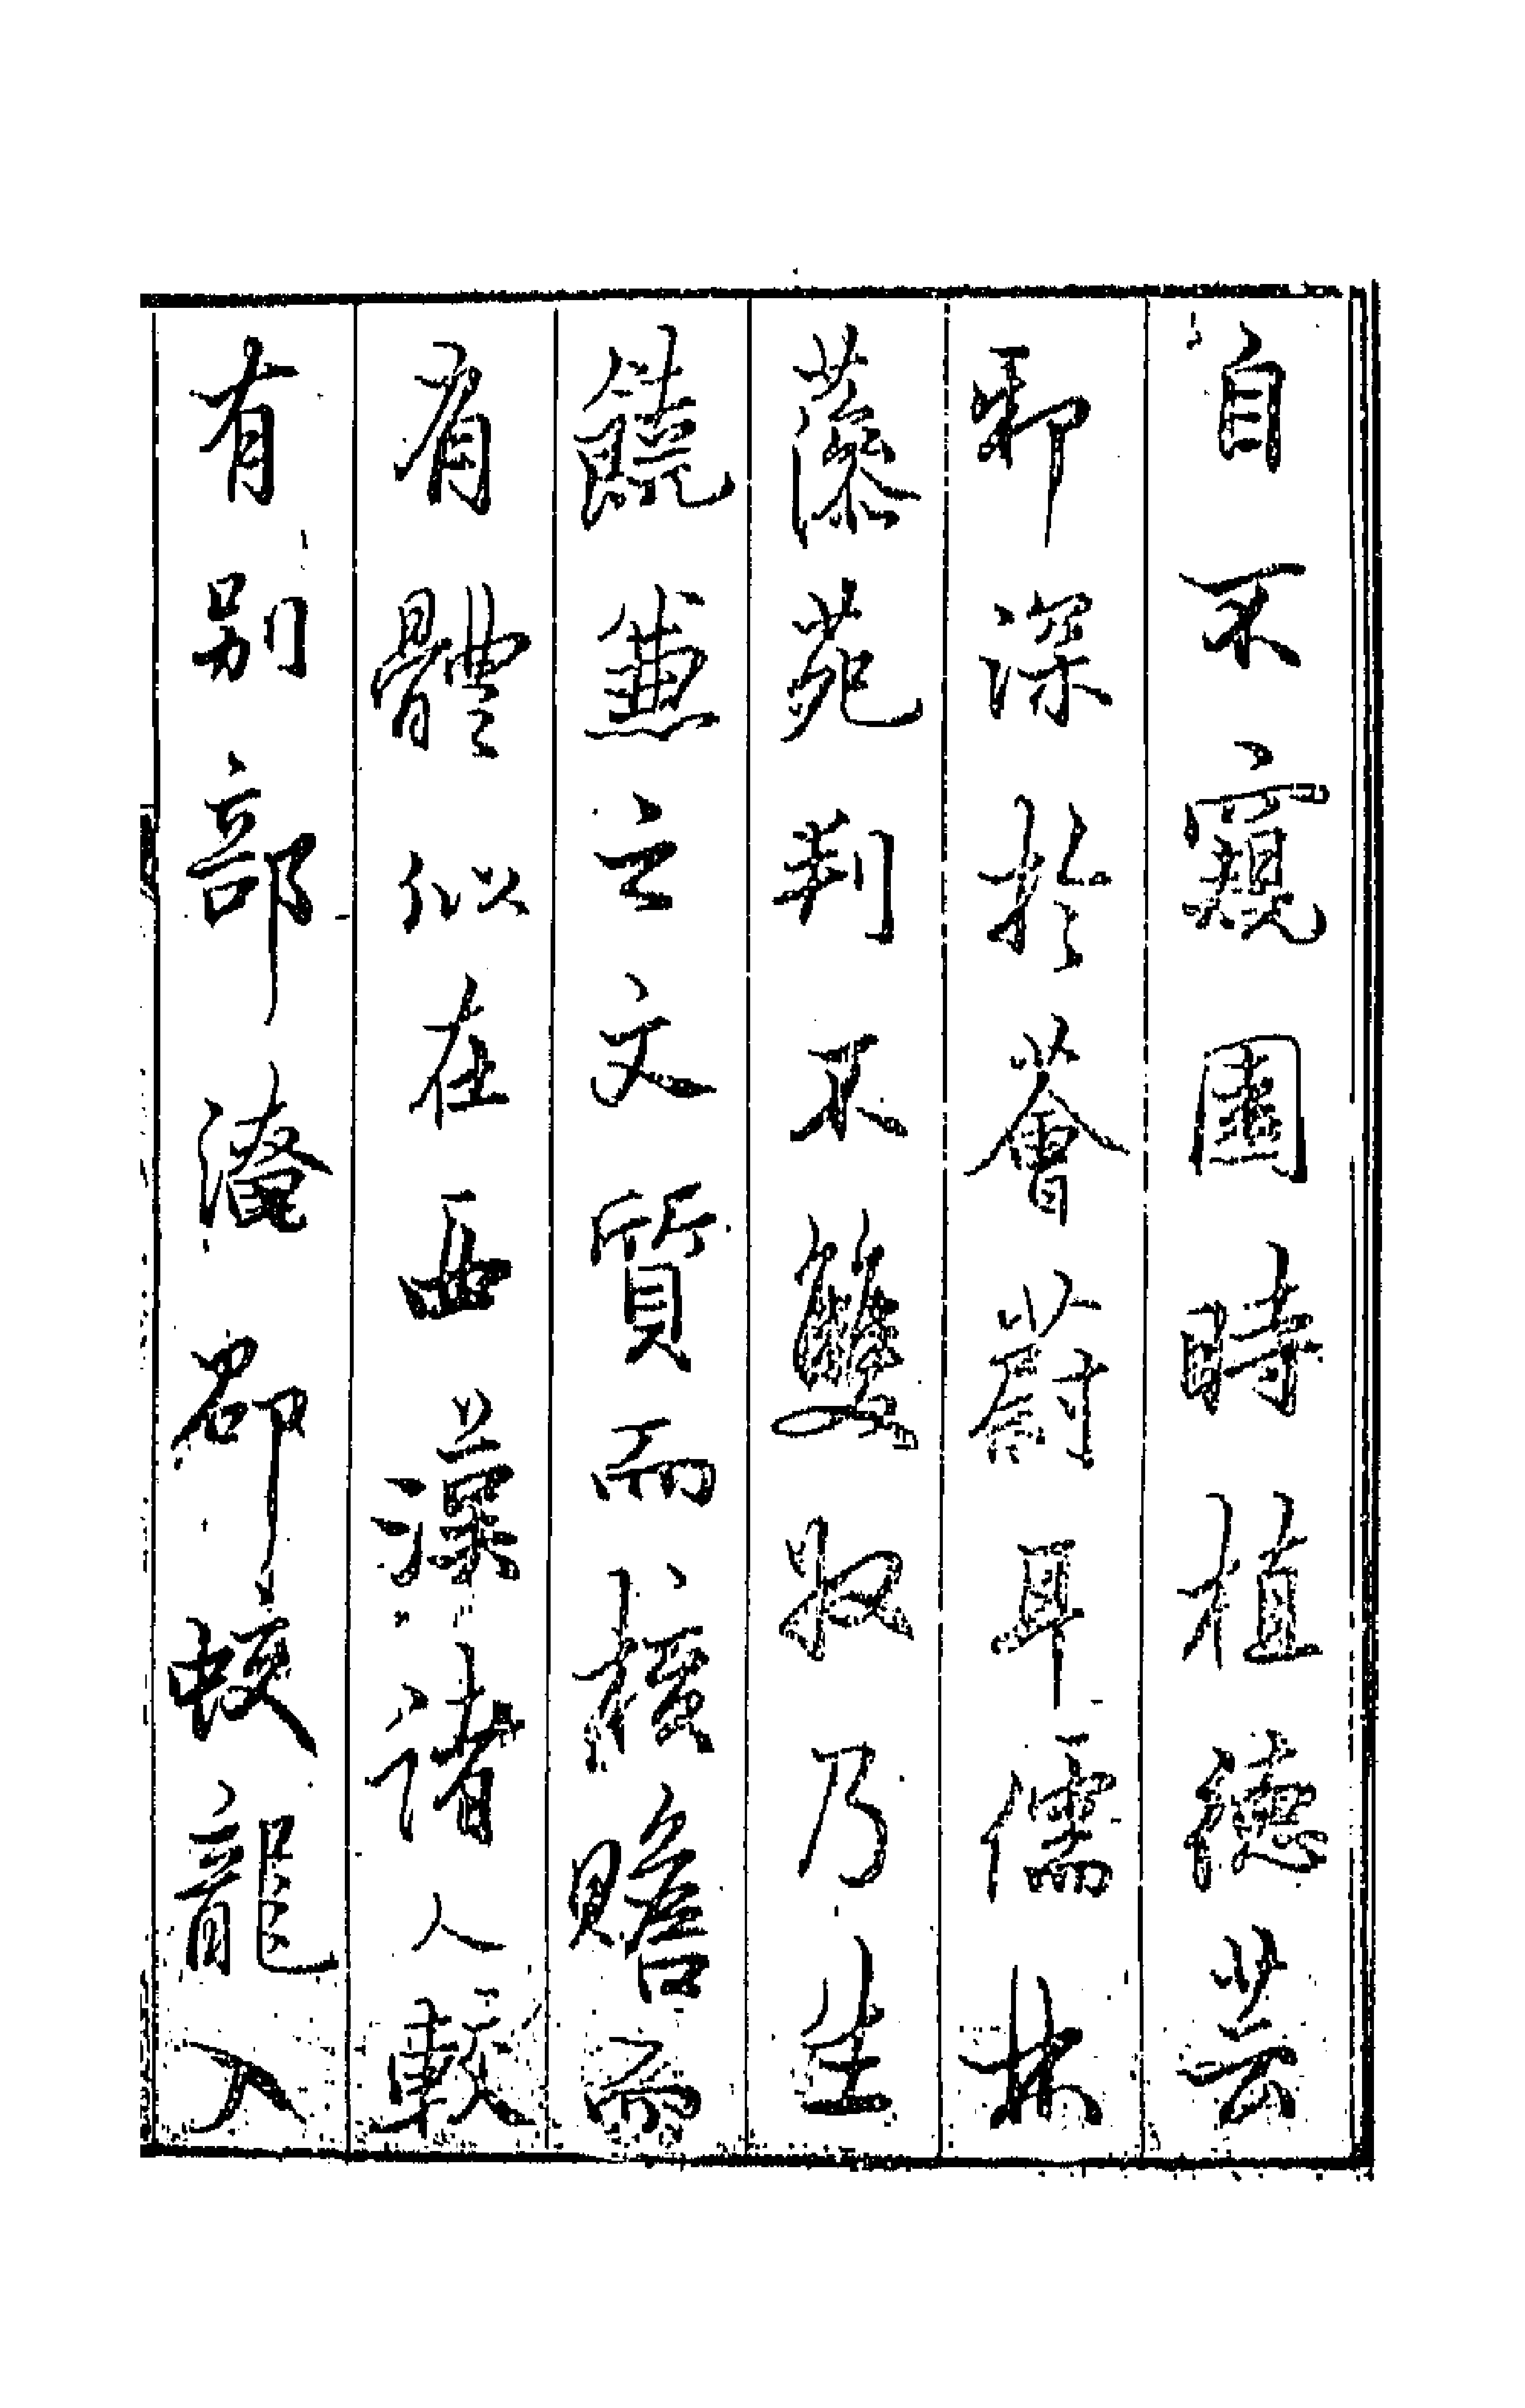 自不窺園時植德芸
郼深於薈蔚耳儒林
藻苑判不雙收乃生
饒兼之文質而核贍而
有體似在西漢諸人較
有別部濓却蛟龍入